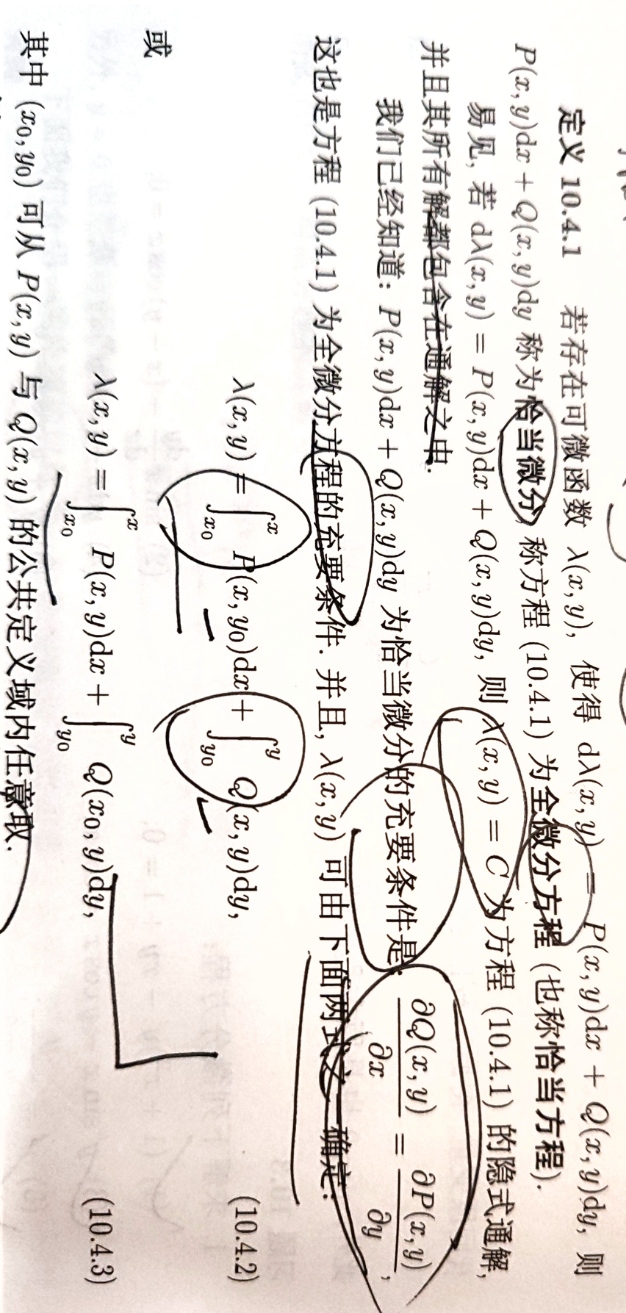 定义 10.4.1 若存在可微函数 λ(x, y), 使得 dλ(x, y) = P(x, y)dx + Q(x, y)dy, 则
P(x, y)dx + Q(x, y)dy 称为恰当微分, 称方程 (10.4.1) 为全微分方程 (也称恰当方程).
易见, 若 dλ(x, y) = P(x, y)dx + Q(x, y)dy, 则 λ(x, y) = C 为方程 (10.4.1) 的隐式通解,
并且其所有解都包含在通解之中.
我们已经知道: P(x, y)dx + Q(x, y)dy 为恰当微分的充要条件是: ∂Q(x, y)/∂x = ∂P(x, y)/∂y,
这也是方程 (10.4.1) 为全微分方程的充要条件. 并且, λ(x, y) 可由下面两式之一确定:
λ(x, y) = ∫_{x₀}^{x} P(x, y₀)dx + ∫_{y₀}^{y} Q(x, y)dy, (10.4.2)
或
λ(x, y) = ∫_{x₀}^{x} P(x, y)dx + ∫_{y₀}^{y} Q(x₀, y)dy, (10.4.3)
其中 (x₀, y₀) 可从 P(x, y) 与 Q(x, y) 的公共定义域内任意取.